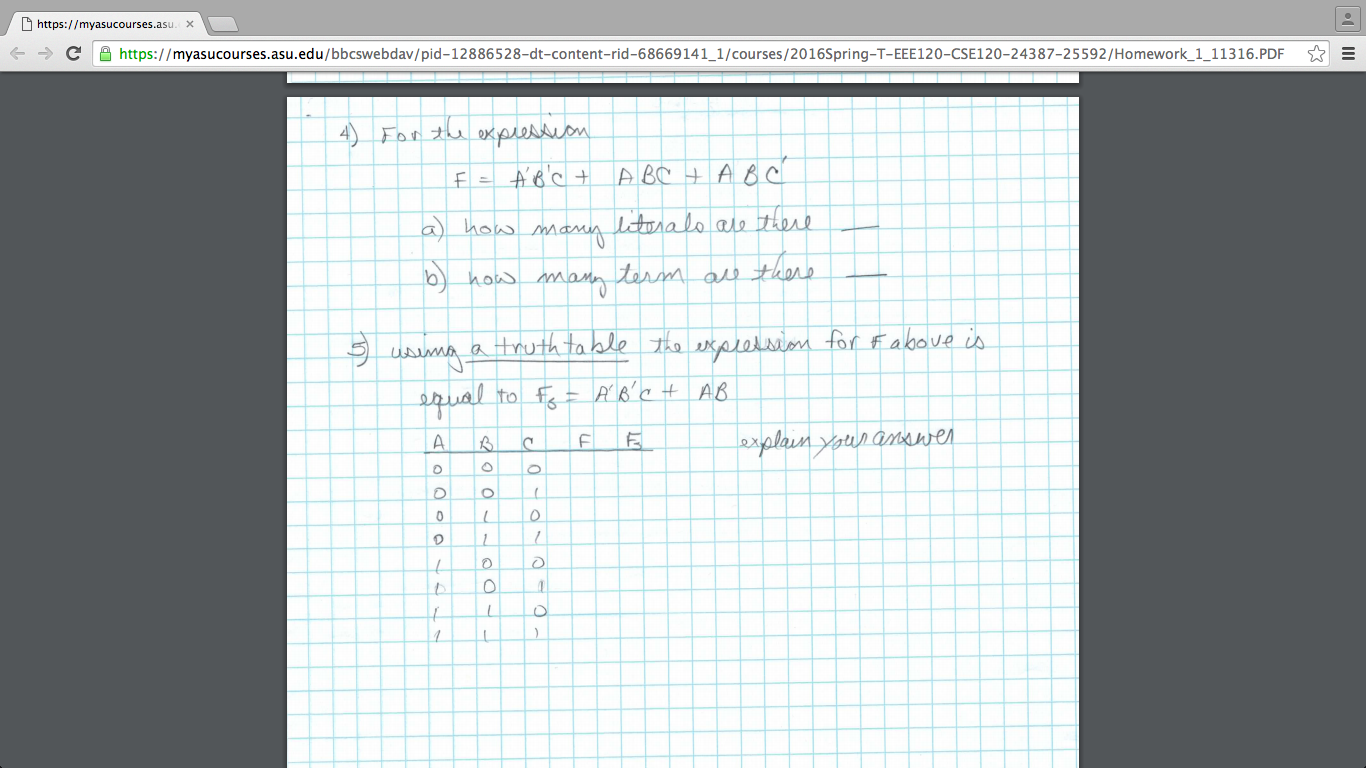 https://myasucourses.asu.
https://myasucourses.asu.edu/bbcswebdav/pid-12886528-dt-content-rid-68669141_1/courses/2016Spring-T-EEE120-CSE120-24387-25592/Homework_1_11316.PDF
4) For the expression
F = A'B'C + ABC + ABC'
a) how many literals are there ___
b) how many term are there ___
5) using a truth table the expression for F above is
equal to F5 = A'B'C + AB
A B C F F5 explain your answer
0 0 0
0 0 1
0 1 0
0 1 1
1 0 0
1 0 1
1 1 0
1 1 1